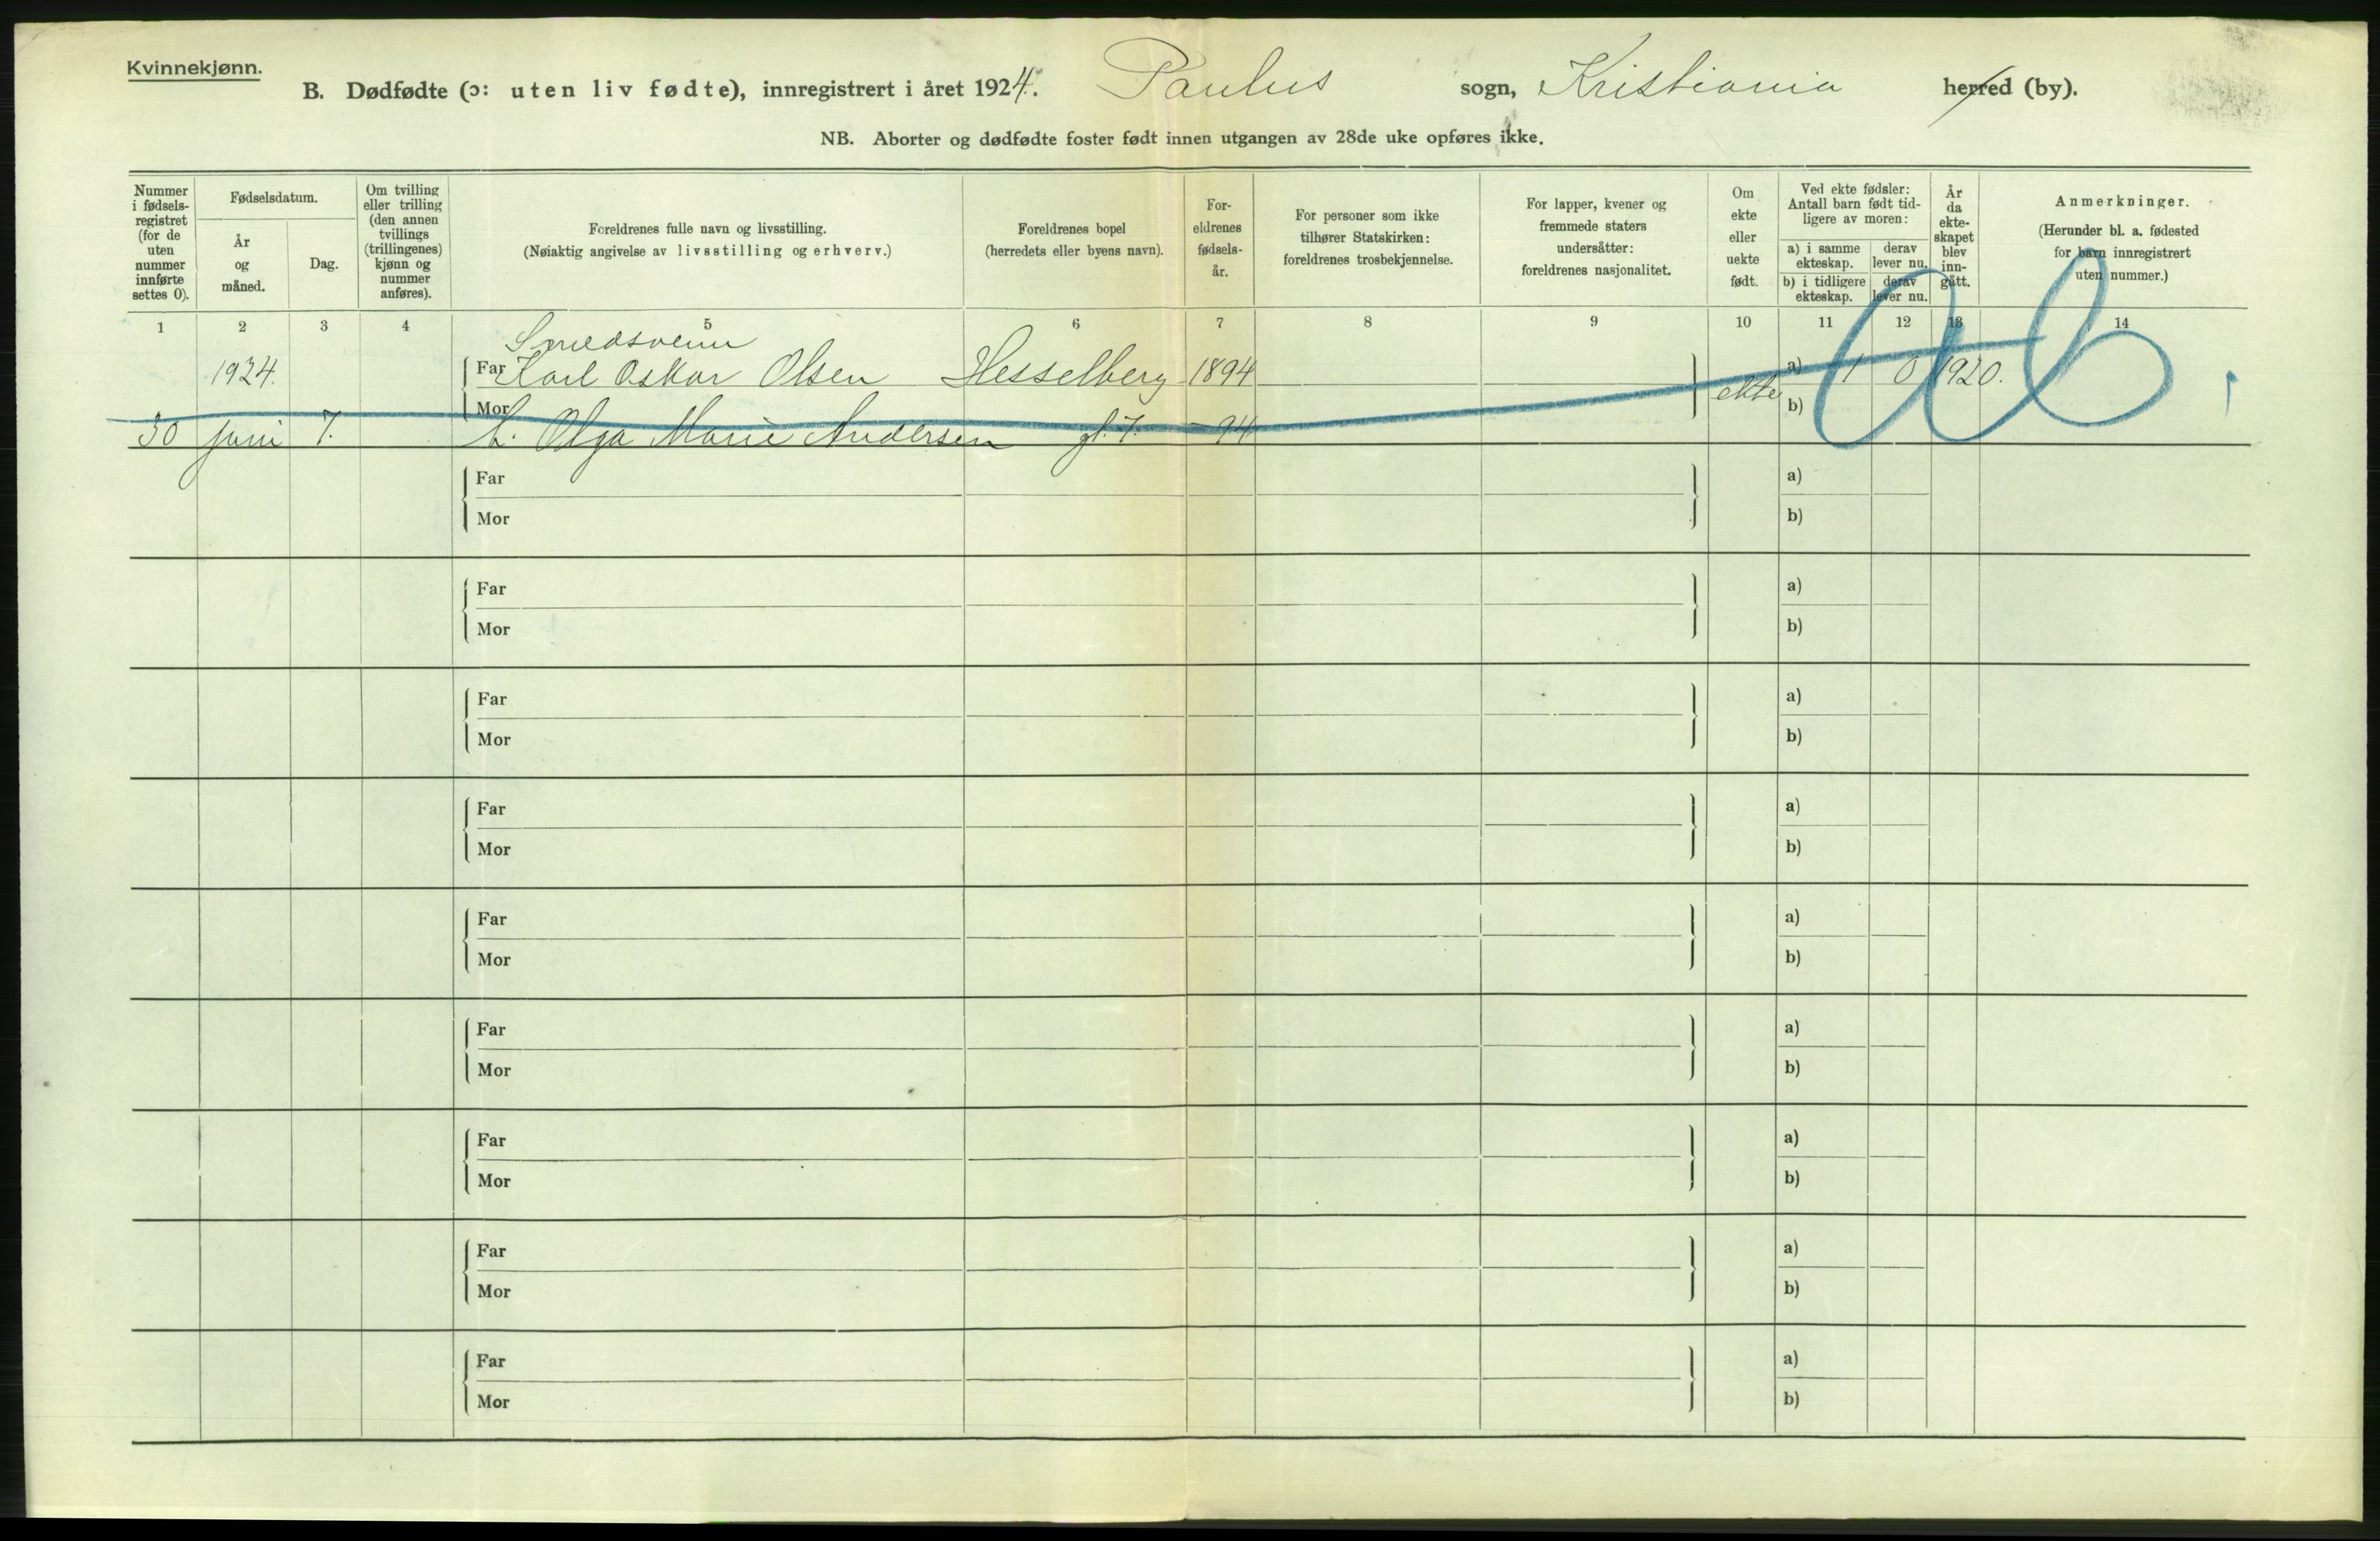 Kvinnekjønn.
B. Dødfødte (ɔ: uten liv fødte), innregistrert i året 1924. Paulus sogn, Kristiania herred (by).
NB. Aborter og dødfødte foster født innen utgangen av 28de uke opføres ikke.
Nummer i fødselsregistret (for de uten nummer innførte settes 0).
Fødselsdatum.
År og måned.
Dag.
Om tvilling eller trilling (den annen tvillings (trillingenes) kjønn og nummer anføres).
Foreldrenes fulle navn og livsstilling.
(Nøiaktig angivelse av livsstilling og erhverv.)
Foreldrenes bopel
(herredets eller byens navn).
Foreldrenes fødselsår.
For personer som ikke tilhører Statskirken: foreldrenes trosbekjennelse.
For lapper, kvener og fremmede staters undersåtter: foreldrenes nasjonalitet.
Om ekte eller uekte født.
Ved ekte fødsler: Antall barn født tidligere av moren:
a) i samme ekteskap. derav lever nu.
b) i tidligere ekteskap. derav lever nu.
År da ekteskapet blev inngått.
Anmerkninger.
(Herunder bl. a. fødested for barn innregistrert uten nummer.)
1 2 3 4 5 6 7 8 9 10 11 12 13 14
Smedsvenn
1924. Far Karl Oskar Olsen Hesselberg 1894 ekte a) 1 0 1920.
Mor b)
30 juni 7. h. Olga Marie Andersen gt. 7. 94
Ab
Far a)
Mor b)
Far a)
Mor b)
Far a)
Mor b)
Far a)
Mor b)
Far a)
Mor b)
Far a)
Mor b)
Far a)
Mor b)
Far a)
Mor b)
Far a)
Mor b)